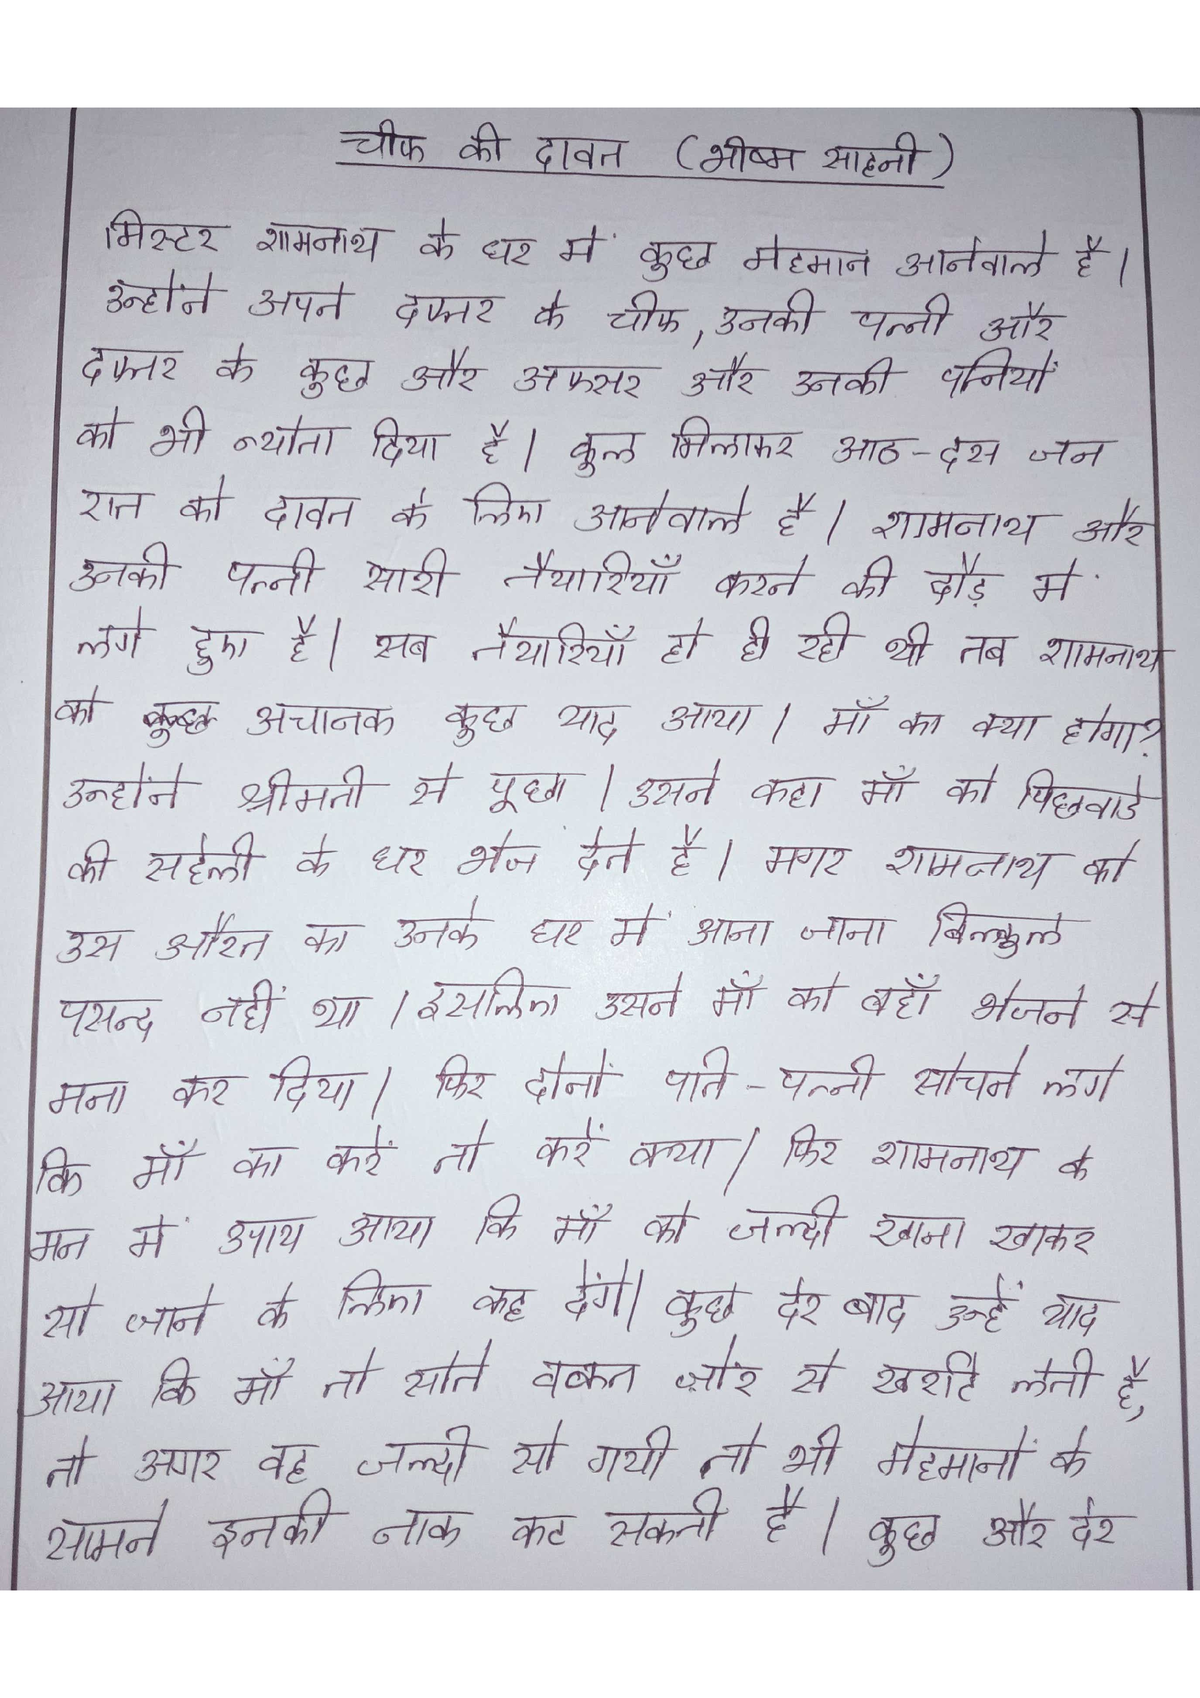 चीफ की दावत (भीष्म साहनी)
मिस्टर शामनाथ के घर में कुछ मेहमान आनेवाले है।
उन्होंने अपने दफ्तर के चीफ, उनकी पत्नी और
दफ्तर के कुछ और अफ्सर और उनकी पत्नियों
को भी न्योता दिया है। कुल मिलाकर आठ-दस जन
रात को दावत के लिए आनेवाले है। शामनाथ और
उनकी पत्नी सारी तैयारियाँ करने की दौड़ में
लगे हुए है। सब तैयारियाँ हो ही रही थी तब शामनाथ
को अचानक कुछ याद आया। माँ का क्या होगा?
उन्होंने श्रीमती से पूछा। उसने कहा माँ को पिछवाडे
की सहेली के घर भेज देते है। मगर शामनाथ को
उस औरत का उनके घर में आना जाना बिल्कुल
पसन्द नहीं था। इसलिए उसने माँ को वहाँ भेजने से
मना कर दिया। फिर दोनों पति-पत्नी सोचने लगे
कि माँ का करें तो करें क्या। फिर शामनाथ के
मन में उपाय आया कि माँ को जल्दी खाना खाकर
सो जाने के लिए कह देंगे। कुछ देर बाद उन्हें याद
आया कि माँ तो सोते वक्त जोर से खर्राटे लेती है,
तो अगर वह जल्दी सो गयी तो भी मेहमानों के
सामने इनकी नाक कट सकती है। कुछ और देर